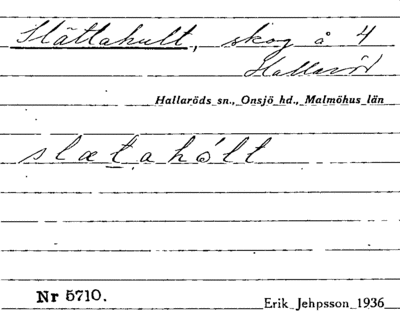 Slättahult, skog å 4
Hallaröd
Hallaröds sn., Onsjö hd., Malmöhus län
slætahólt
Nr 5710.
Erik Jehpsson 1936